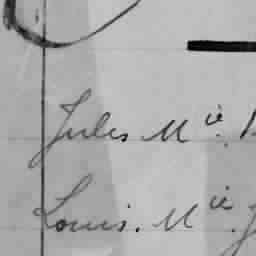 Jules Mie.
Louis. Mie.